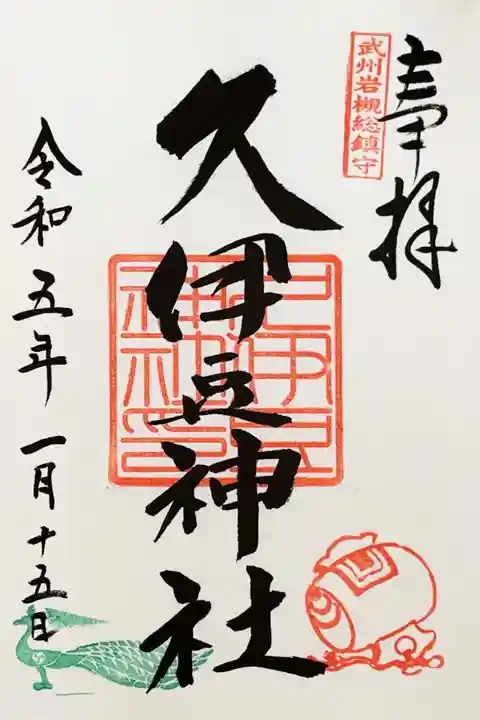 奉拝
武州岩槻総鎮守
久伊豆神社
令和五年一月十五日